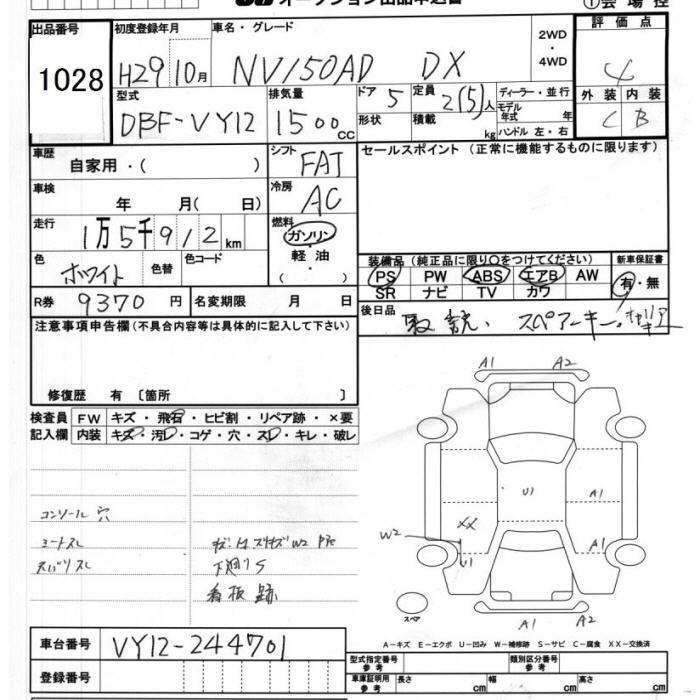 オークション出品申込書
①会場控
出品番号
1028
初度登録年月
H29 10月
車名・グレード
NV150AD DX
2WD
・
4WD
評価点
4
外装 内装
C B
型式
DBF-VY12
排気量
1500 cc
ドア 5
形状
定員 2(5)人
積載 kg
ディーラー・並行
モデル年式 年
ハンドル 左・右
車歴
自家用・( )
シフト
FAT
セールスポイント (正常に機能するものに限ります)
車検
年 月( 日)
冷房
AC
走行
1万5千912km
燃料
ガソリン
・
軽油
・
( )
色
ホワイト
色替
色コード
装備品 (純正品に限り○をつけてください)
PS PW ABS エアB AW
SR ナビ TV カワ
新車保証書
有・無
R券 9370円
名変期限 月 日
後日品
取説、スペアーキー、
注意事項申告欄(不具合内容等は具体的に記入して下さい)
修復歴 有 〔箇所 〕
検査員記入欄
FW キズ・飛石・ヒビ割・リペア跡・×要
内装 キズ・汚レ・コゲ・穴・スレ・キレ・破レ
A1 A2
U1 A1
W2 XX U1 A1
A1 A2
スペア
コンソール穴
シートスレ
下廻りS
看板跡
A-キズ E-エクボ U-凹み W-補修跡 S-サビ C-腐食 XX-交換済
車台番号 VY12-244701
登録番号
型式指定番号 参考
類別区分番号 参考
車庫証明用 参考
長さ cm 幅 cm 高さ cm